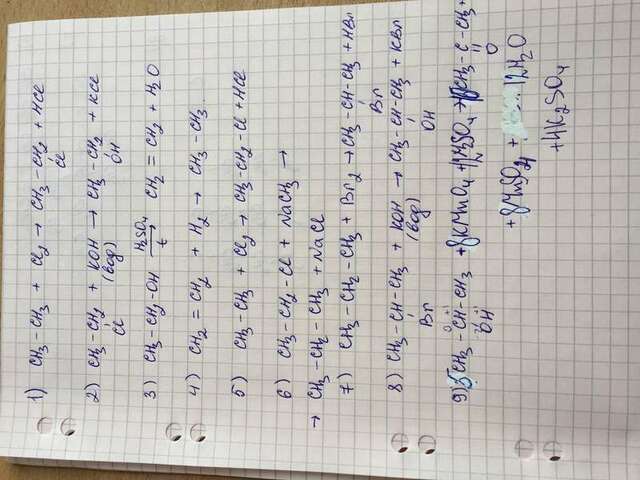 1) CH₃ – CH₃ + Cl₂ → CH₃ – CH₂ + HCl
Cl
2) CH₃ – CH₂ + KOH → CH₃ – CH₂ + KCl
Cl (вод) OH
3) CH₃ – CH₂ – OH H₂SO₄ → t CH₂ = CH₂ + H₂O
4) CH₂ = CH₂ + H₂ → CH₃ – CH₃.
5) CH₃ – CH₃ + Cl₂ → CH₃ – CH₂ – Cl + HCl
6) CH₃ – CH₂ – Cl + NaCH₃ →
→ CH₃ – CH₂ – CH₃ + NaCl
7) CH₃ – CH₂ – CH₃ + Br₂ → CH₃ – CH – CH₃ + HBr
Br
8) CH₃ – CH – CH₃ + KOH → CH₃ – CH – CH₃ + KBr
Br (вод) OH
9) 5CH₃ – CH – CH₃ + 8KMnO₄ + 12H₂SO₄ → CH₃ – C – CH₃ +
OH O
+ 8MnSO₄ + 12H₂O
+ 4K₂SO₄